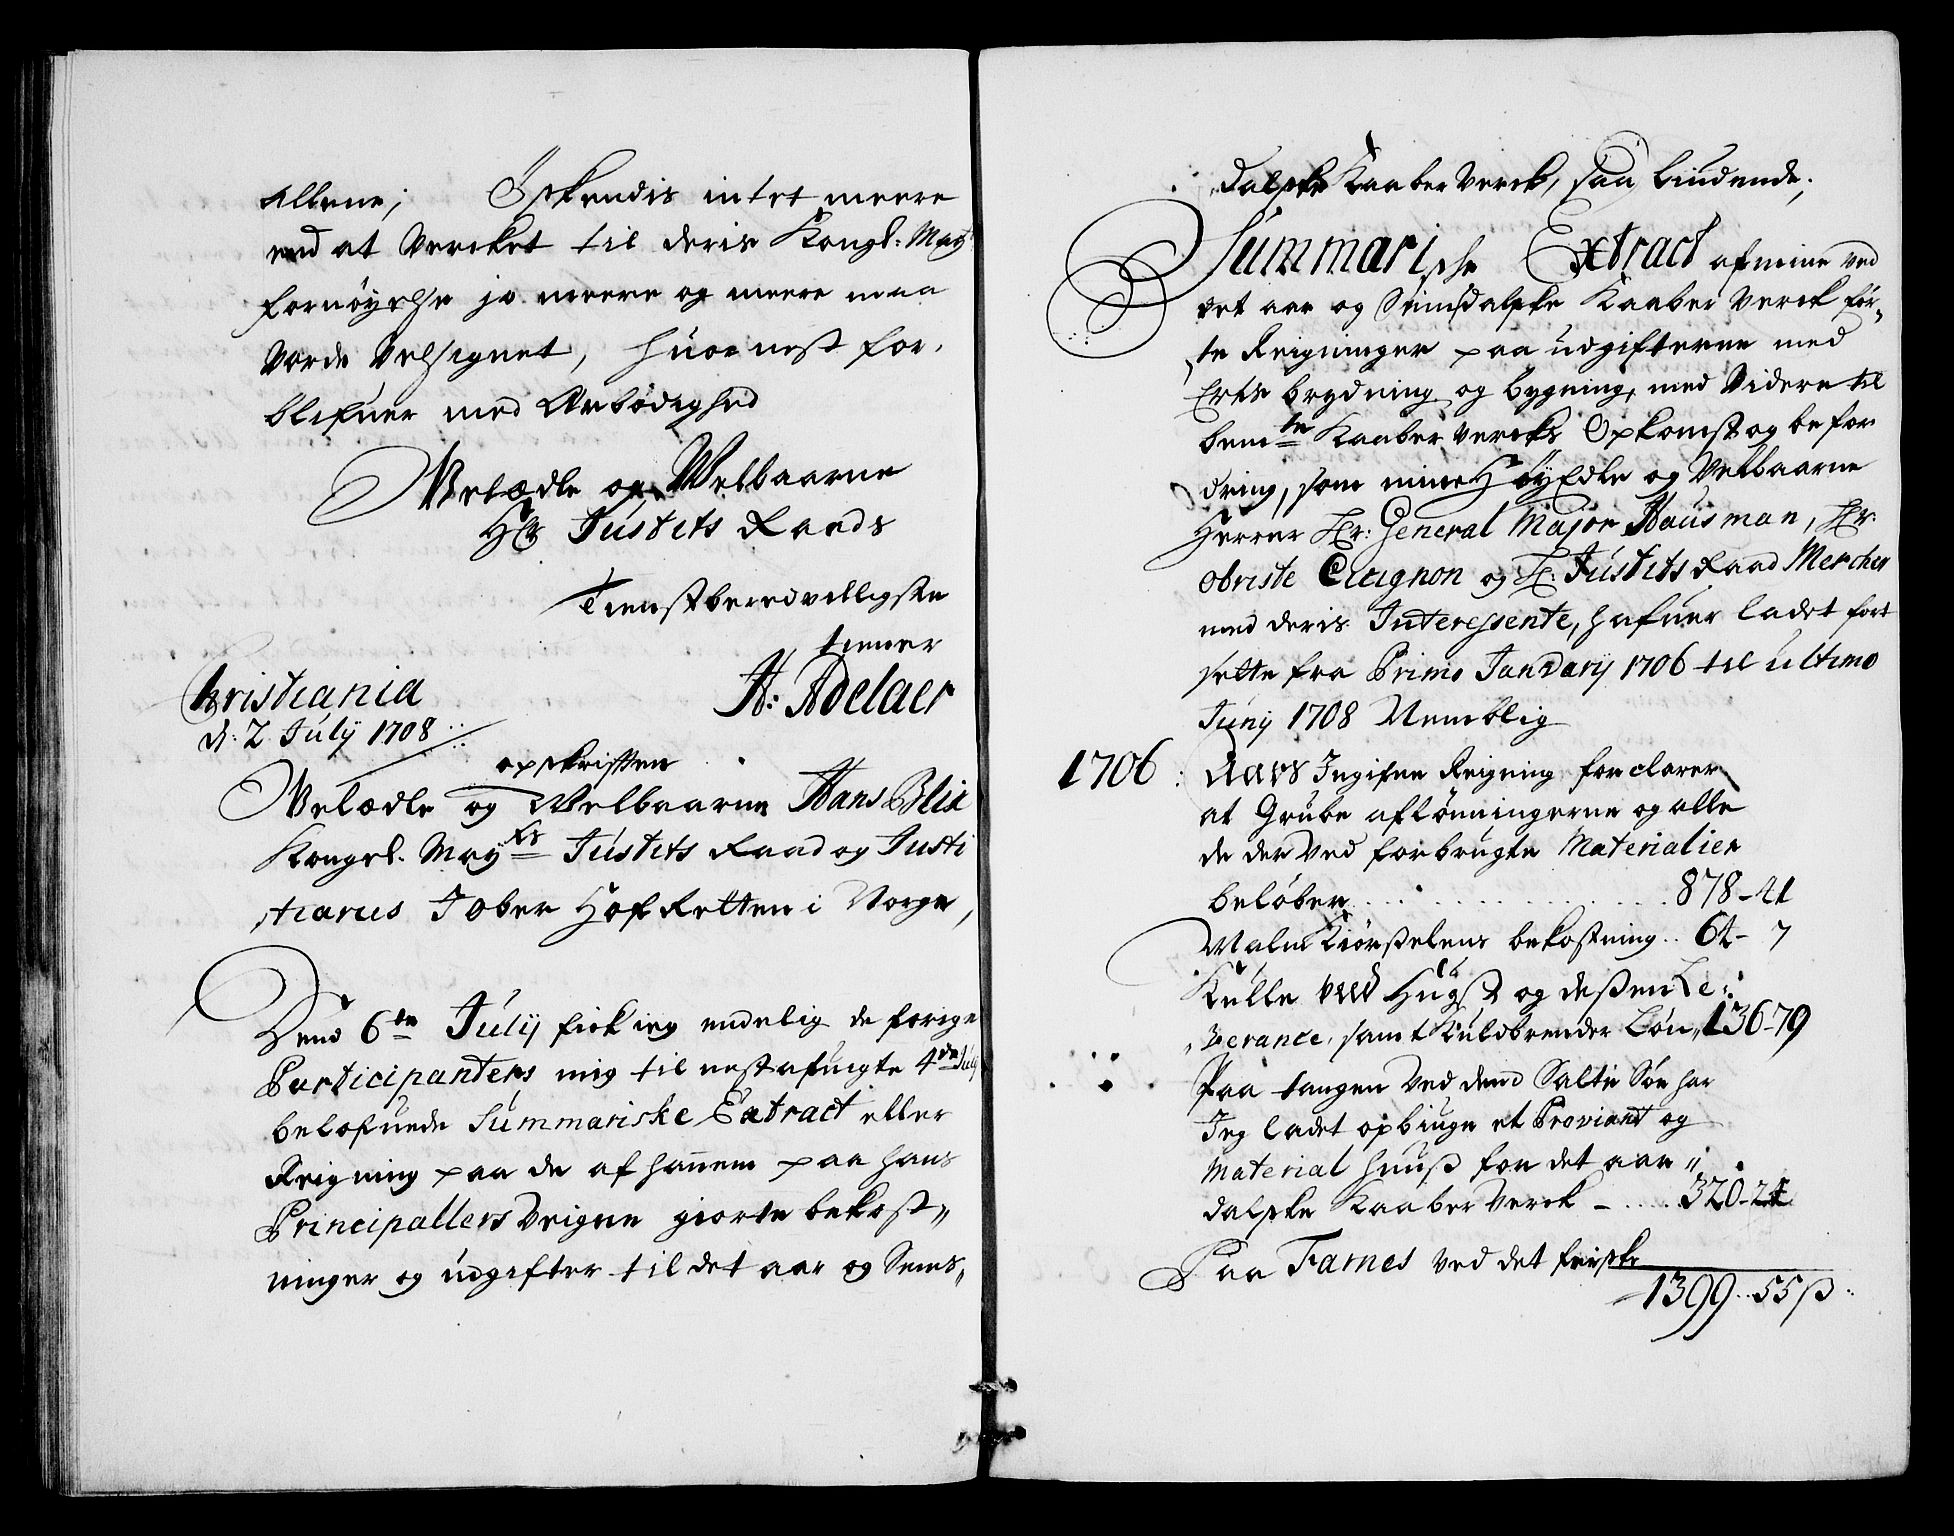 allene; Ønskendis intet meere
end at Vercket til deris Kongl: May
fornøyelse jo meere og meere maa
vorde velsignet, huornest for-
blifuer med Ærbødighed
Velædle og Welbaarne
Hr Justits Raads
Tienstberedvilligste
tiener
H: Adelaer
Christiania
d: 2 July 1708
opskrifften
Velædle og Welbaarne Hans
Kongel. Mayts Justits Raad og Justi
tiarius J Ober Hof Retten i Norge,
Dend 6te July fick ieg endelig de forige
Participanters mig til nestafuigte 4de July
belofuede Summariske Extract eller
Reigning paa de af hannem paa hans
Principallers veigne giorte bekost„
ninger og udgifter til det aar og Sems„
dalske Kaaber Verck, saa liudende;
Summarische Extract af mine ved
det aar og Semsdalske Kaaber Verck før„
„te Reigninger paa udgifterne med
Erts brydning og bygning, med Videre til
bemte Kaaber vercks Opkomst og befor
dring, som mine HøyEdle og Velbaarne
Herrer Hr: General Major Hausman, Hr:
Obriste Cicignon og H: Justits Raad Mercker
med deris Interessente, hafuer ladet fort
sette fra Primo January 1706 til ultimo
Junij 1708 Nemblig
1706: Aars Ingifne Reigning forclarer
at Grube afLønningerne og alle
de der ved forbrugte Materialier
beløber . . . . . . . . . . 878-41
Malm Kiørselens bekostning . . 64- 7
Kulle ved Hugst og dessen Le„
„verance, samt Kulbrender Løn„ 136-79
Paa tangen Ved dend Salte Søe har
Jeg ladet opbiuge et Proviant og
Material huus for det aar„
dalske Kaaber Verck - . . . . 320-24
Paa Farnes ved det ferske
1399..55 ß